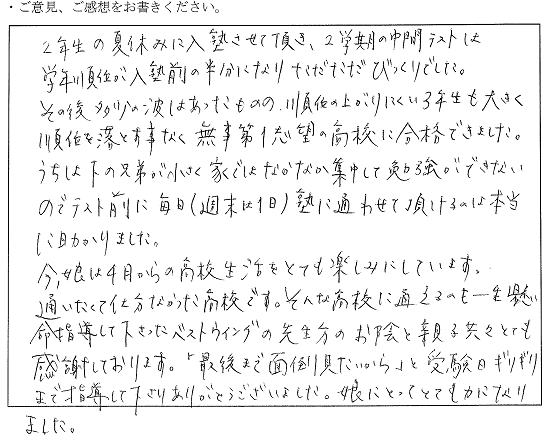 ・ご意見、ご感想をお書きください。
2年生の夏休みに入塾させて頂き、2学期の中間テストは
学年順位が入塾前の半分になり ただただびっくりでした。
その後 多少の波はあったものの、順位の上がりにくい3年生も大きく
順位を落とす事なく 無事第1志望の高校に合格できました。
うちは下の兄弟が小さく家ではなかなか集中して勉強ができない
のでテスト前に毎日(週末は1日)塾に通わせて頂けるのは本当
に助かりました。
今、娘は4月からの高校生活をとても楽しみにしています。
通いたくて仕方なかった高校です。そんな高校に通えるのも一生懸
命指導して下さったベストウイングの先生方のお陰と親子共々とても
感謝しております。「最後まで面倒見たいから」と受験日ギリギリ
まで指導して下さりありがとうございました。娘にとってとても力になり
ました。